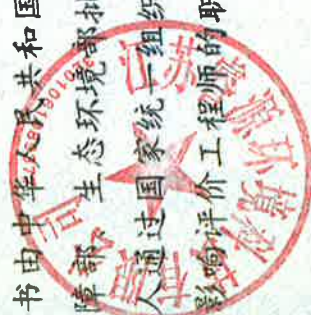 书由中华人民共和国
障部、生态环境部批
人通过国家统一组织
影响评价工程师的职